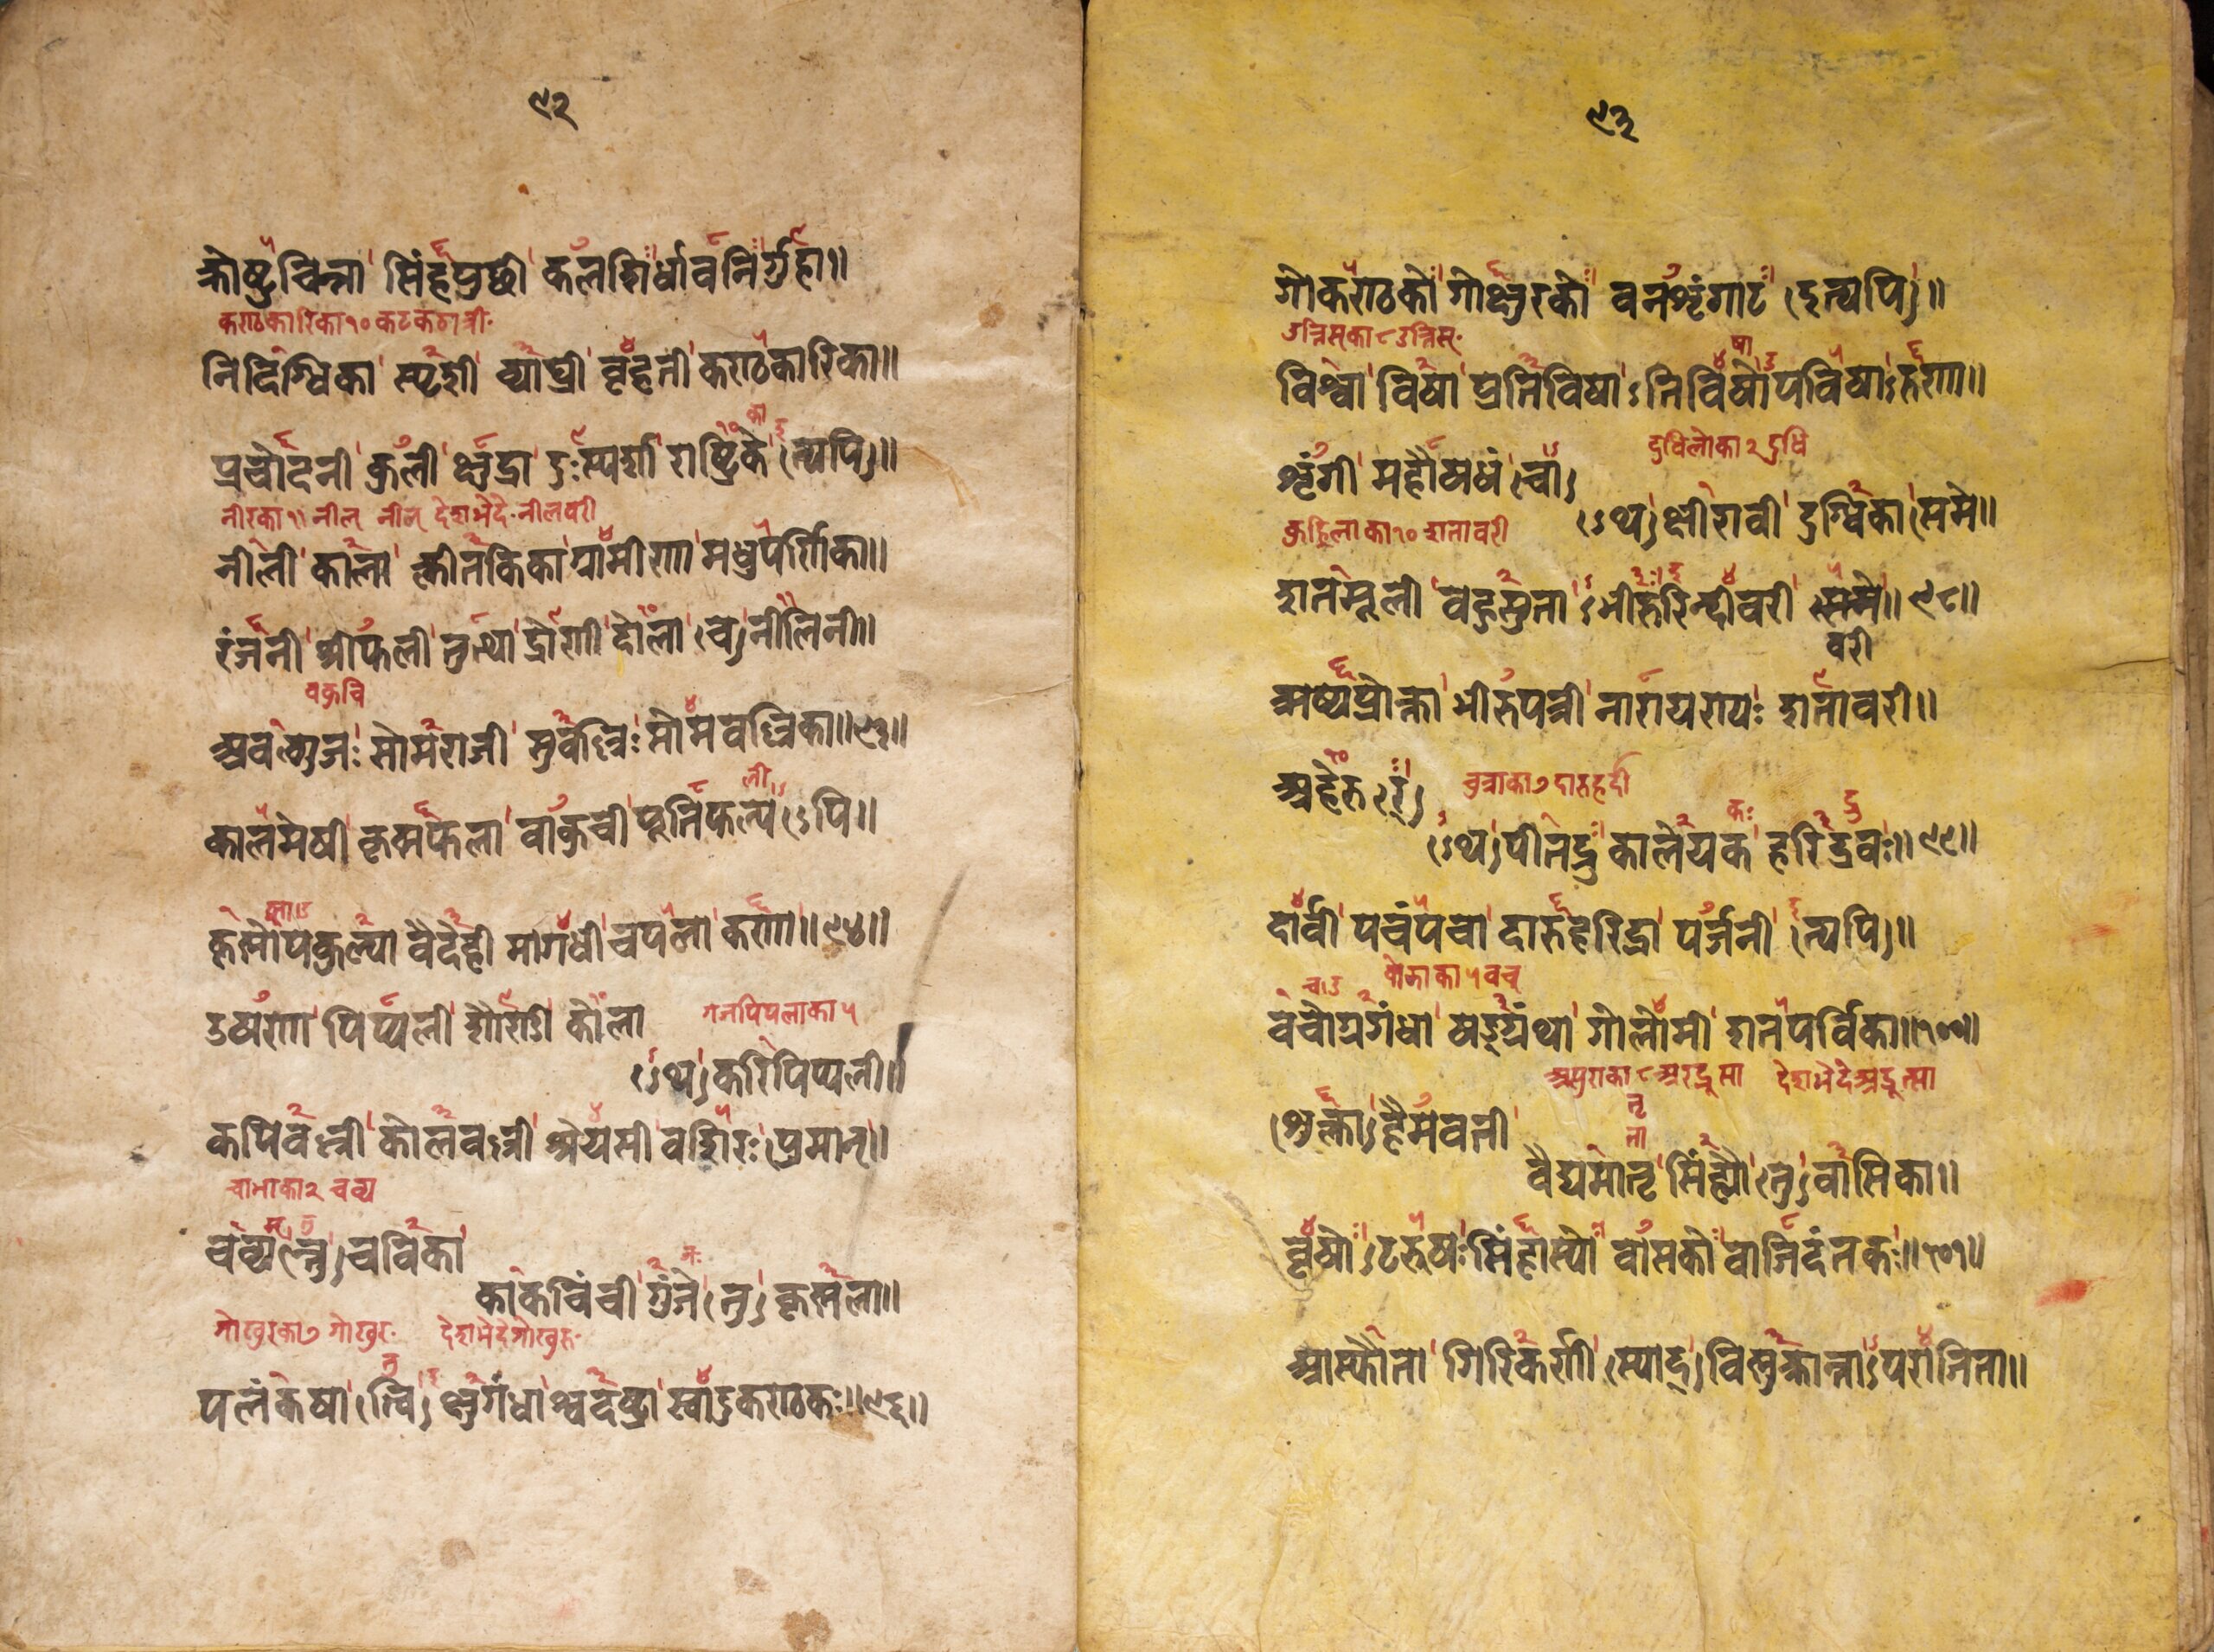 ९२
क्रोष्टुविन्ना सिंहपुच्छी कलशिर्धावनिर्गुहा॥
कण्ठकारिका १० कटकठात्री:
निदिग्धिका स्पृशी व्याघ्री वृहती कण्ठकारिका॥
प्रचोदनी कुली क्षुद्रा दुःस्पर्शा राष्ट्रिके त्यपि॥
नीरका ११ नील्
नीली काला क्लीतकिका ग्रामीणा मधुपर्णिका॥
रंजनी श्रीफली तुत्था द्रोणी दोला च नीलिनी॥
वकुचि
अवल्गुजः सोमराजी सुवल्लिः सोमवल्लिका॥९३॥
कालमेषी कृष्मफला वाकुची पूतिफल्य ऽपि॥
कृष्णोपकुल्या वैदेही मागधी चपला कणा॥९४॥
उषणा पिप्पली शौण्डी कोला
गजपिपलाका ५
ऽथ करिपिप्पली॥
कपिवल्ली कोलवल्ली श्रेयसी वशिरः पुमान्॥
चाभाका २ चव्य
चव्यन्तु चविका
काकचिंची गुंजे तु कृष्मला॥
गोखुरका ७ गोखुरः देशभेदे गोखुरु
पलंकषा त्वि क्षुगंधा श्वदंष्ट्रा स्वादुकण्ठकः॥९६॥
९३
गोकण्ठको गोक्षुरको वनशृंगाट इत्यपि॥
विश्वा विषा प्रतिविषा ऽतिविषोपविषा ऽरुणा॥
शृंगी महौषधं चा
दुधिलोका २ दुधि
ऽथ क्षीरावी दुग्धिका समे॥
कुरिलाका १० शतावरी
शतमूली वहुसुता ऽभीरुरिन्दीवरी समे॥९८॥
वरी
ऋष्यप्रोक्ता भीरुपत्री नारायण्यः शतावरी॥
अहेरु
चुत्राका ७ दारुहर्दी
ऽथ पीतद्रु कालेयक हरिद्रवः॥९९॥
दार्वी पचंपचा दारुहरिद्रा पर्जनी त्यपि॥
वोझाका ५ वच्
वचोग्रगंधा षड्ग्रंथा गोलोमी शतपर्विका॥१००॥
असुराका ८ अरद्रुसा देशभेदे अद्रुत्सा
शुक्ला हैमवती
वैद्यमातृ सिंह्यौ तु वासिका॥
वृषो ऽटरूषः सिंहास्यो वासको वाजिदंतकः॥१०१॥
आस्फोता गिरिकर्णी स्याद् विष्णुक्रान्ता ऽपराजिता॥